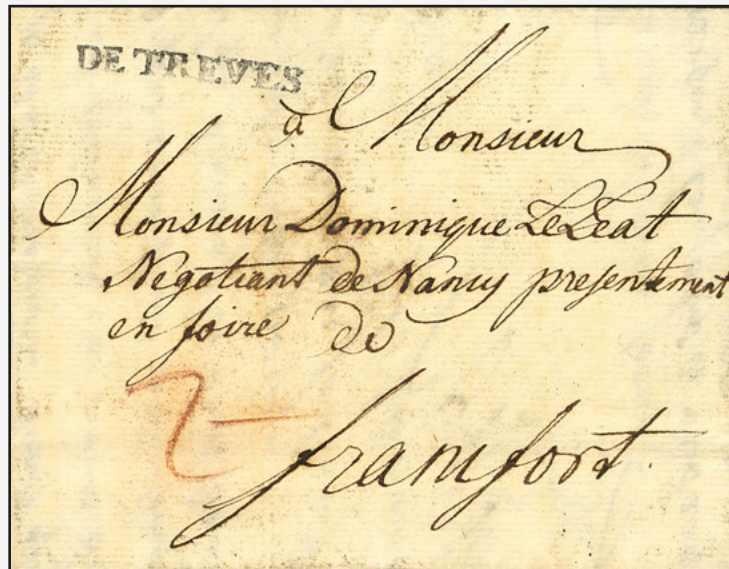 DE TREVES
a Monsieur
Monsieur Dominique LeLeat
Negotiant de Nancy presentement
en foire de
francfort.